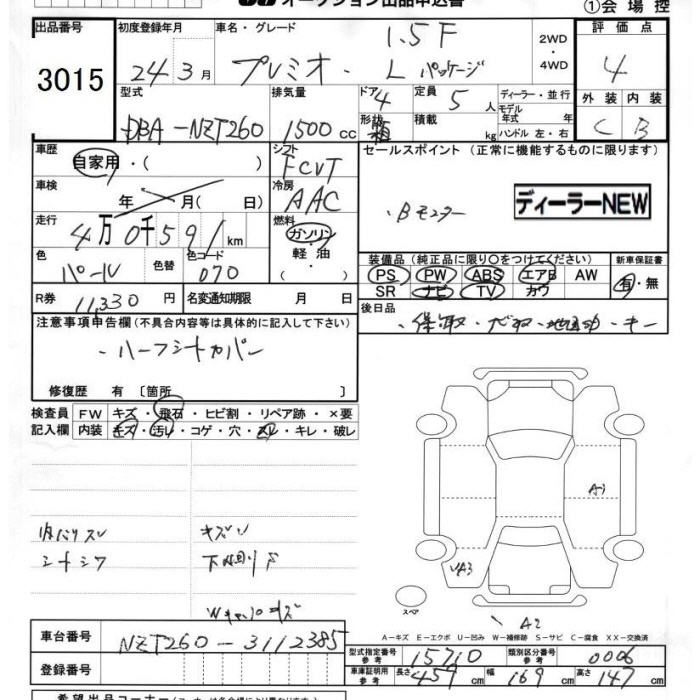 オークション出品申込書
①会場控
出品番号
3015
初度登録年月
24年3月
車名・グレード
プレミオ・
1.5F
Lパッケージ
2WD
・
4WD
評価点
4
外装 内装
C B
型式
DBA-NZT260
排気量
1500cc
ドア
4
形状
箱
定員
5人
積載
kg
ディーラー・並行
モデル
年式 年
ハンドル 左・右
車歴
自家用・( )
シフト
FCVT
セールスポイント (正常に機能するものに限ります)
車検
年 月( 日)
冷房
AAC
・Bモニター
ディーラーNEW
走行
4万0千591km
燃料
ガソリン
・
軽油
・
色
パール
色替
色コード
070
装備品 (純正品に限り〇をつけてください)
PS PW ABS エアB AW
SR ナビ TV カワ
新車保証書
有・無
R券 11,330円
名変通知期限 月 日
後日品
・保取・ナビ取・地図・キー
注意事項申告欄 (不具合内容等は具体的に記入して下さい)
・ハーフシートカバー
修復歴 有 〔箇所 〕
検査員
記入欄
FW キズ・飛石・ヒビ割・リペア跡・×要
内装 キズ・汚レ・コゲ・穴・スレ・キレ・破レ
内バリスレ
シートシワ
キズ
下廻り
A1
A3
A2
スペア
A-キズ E-エクボ U-凹み W-補修跡 S-サビ C-腐食 XX-交換済
車台番号
NZT260-3112385
登録番号
型式指定番号
参考
15710
類別区分番号
参考
0006
車庫証明用
参考
長さ 459cm
幅 169cm
高さ 147cm
希望出品コーナー